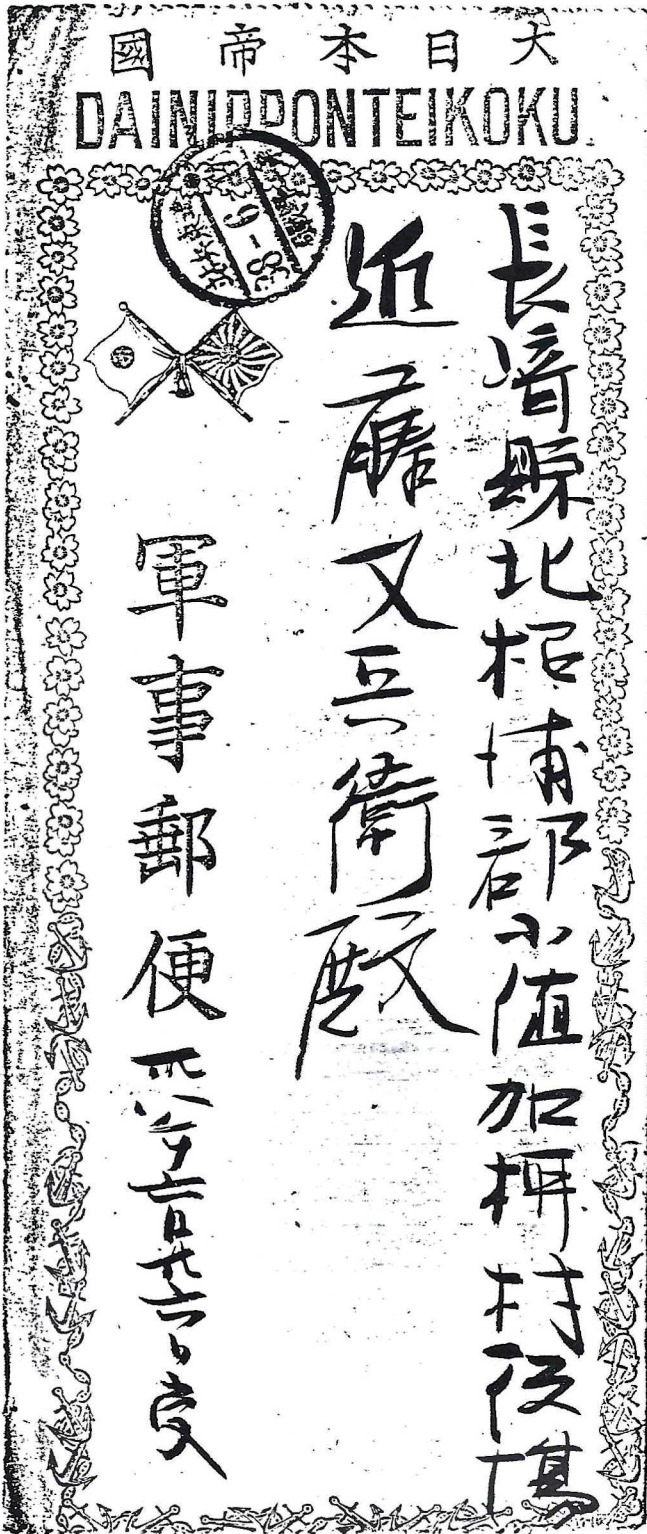 大日本帝國
DAINIPPONTEIKOKU
長崎縣北松浦郡小値加柳村役場
近藤又兵衛殿
軍事郵便
卅八年六月廿六日受
38-6